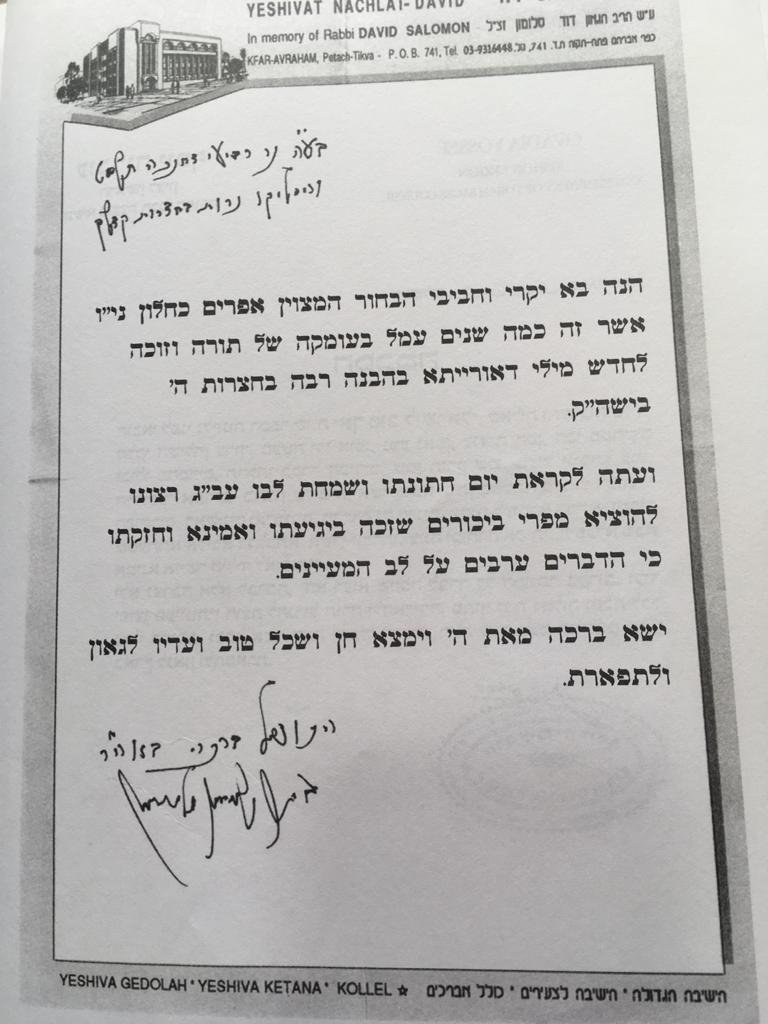 YESHIVAT NACHLAT-DAVID
In memory of Rabbi DAVID SALOMON - ע״ש הרב הגאון דוד סלומון זצ״ל
KFAR-AVRAHAM, Petach-Tikva - P.O.B. 741, Tel. 03-9316448 .כפר אברהם פתח-תקוה ת.ד. 741, טל
בע״ה נר רביעי דחנוכה תשס״ט
והדליקו נרות בחצרות קדשך
הנה בא יקרי וחביבי הבחור המצוין אפרים כחלון ני״ו
אשר זה כמה שנים עמל בעומקה של תורה וזוכה
לחדש מילי דאורייתא בהבנה רבה בחצרות ה'
בישה״ק.
ועתה לקראת יום חתונתו ושמחת לבו עב״ג רצונו
להוציא מפרי ביכורים שזכה ביגיעתו ואמינא וחזקתו
כי הדברים ערבים על לב המעיינים.
ישא ברכה מאת ה' וימצא חן ושכל טוב ועדיו לגאון
ולתפארת.
YESHIVA GEDOLAH * YESHIVA KETANA * KOLLEL ☆ הישיבה הגדולה * הישיבה לצעירים * כולל אברכים